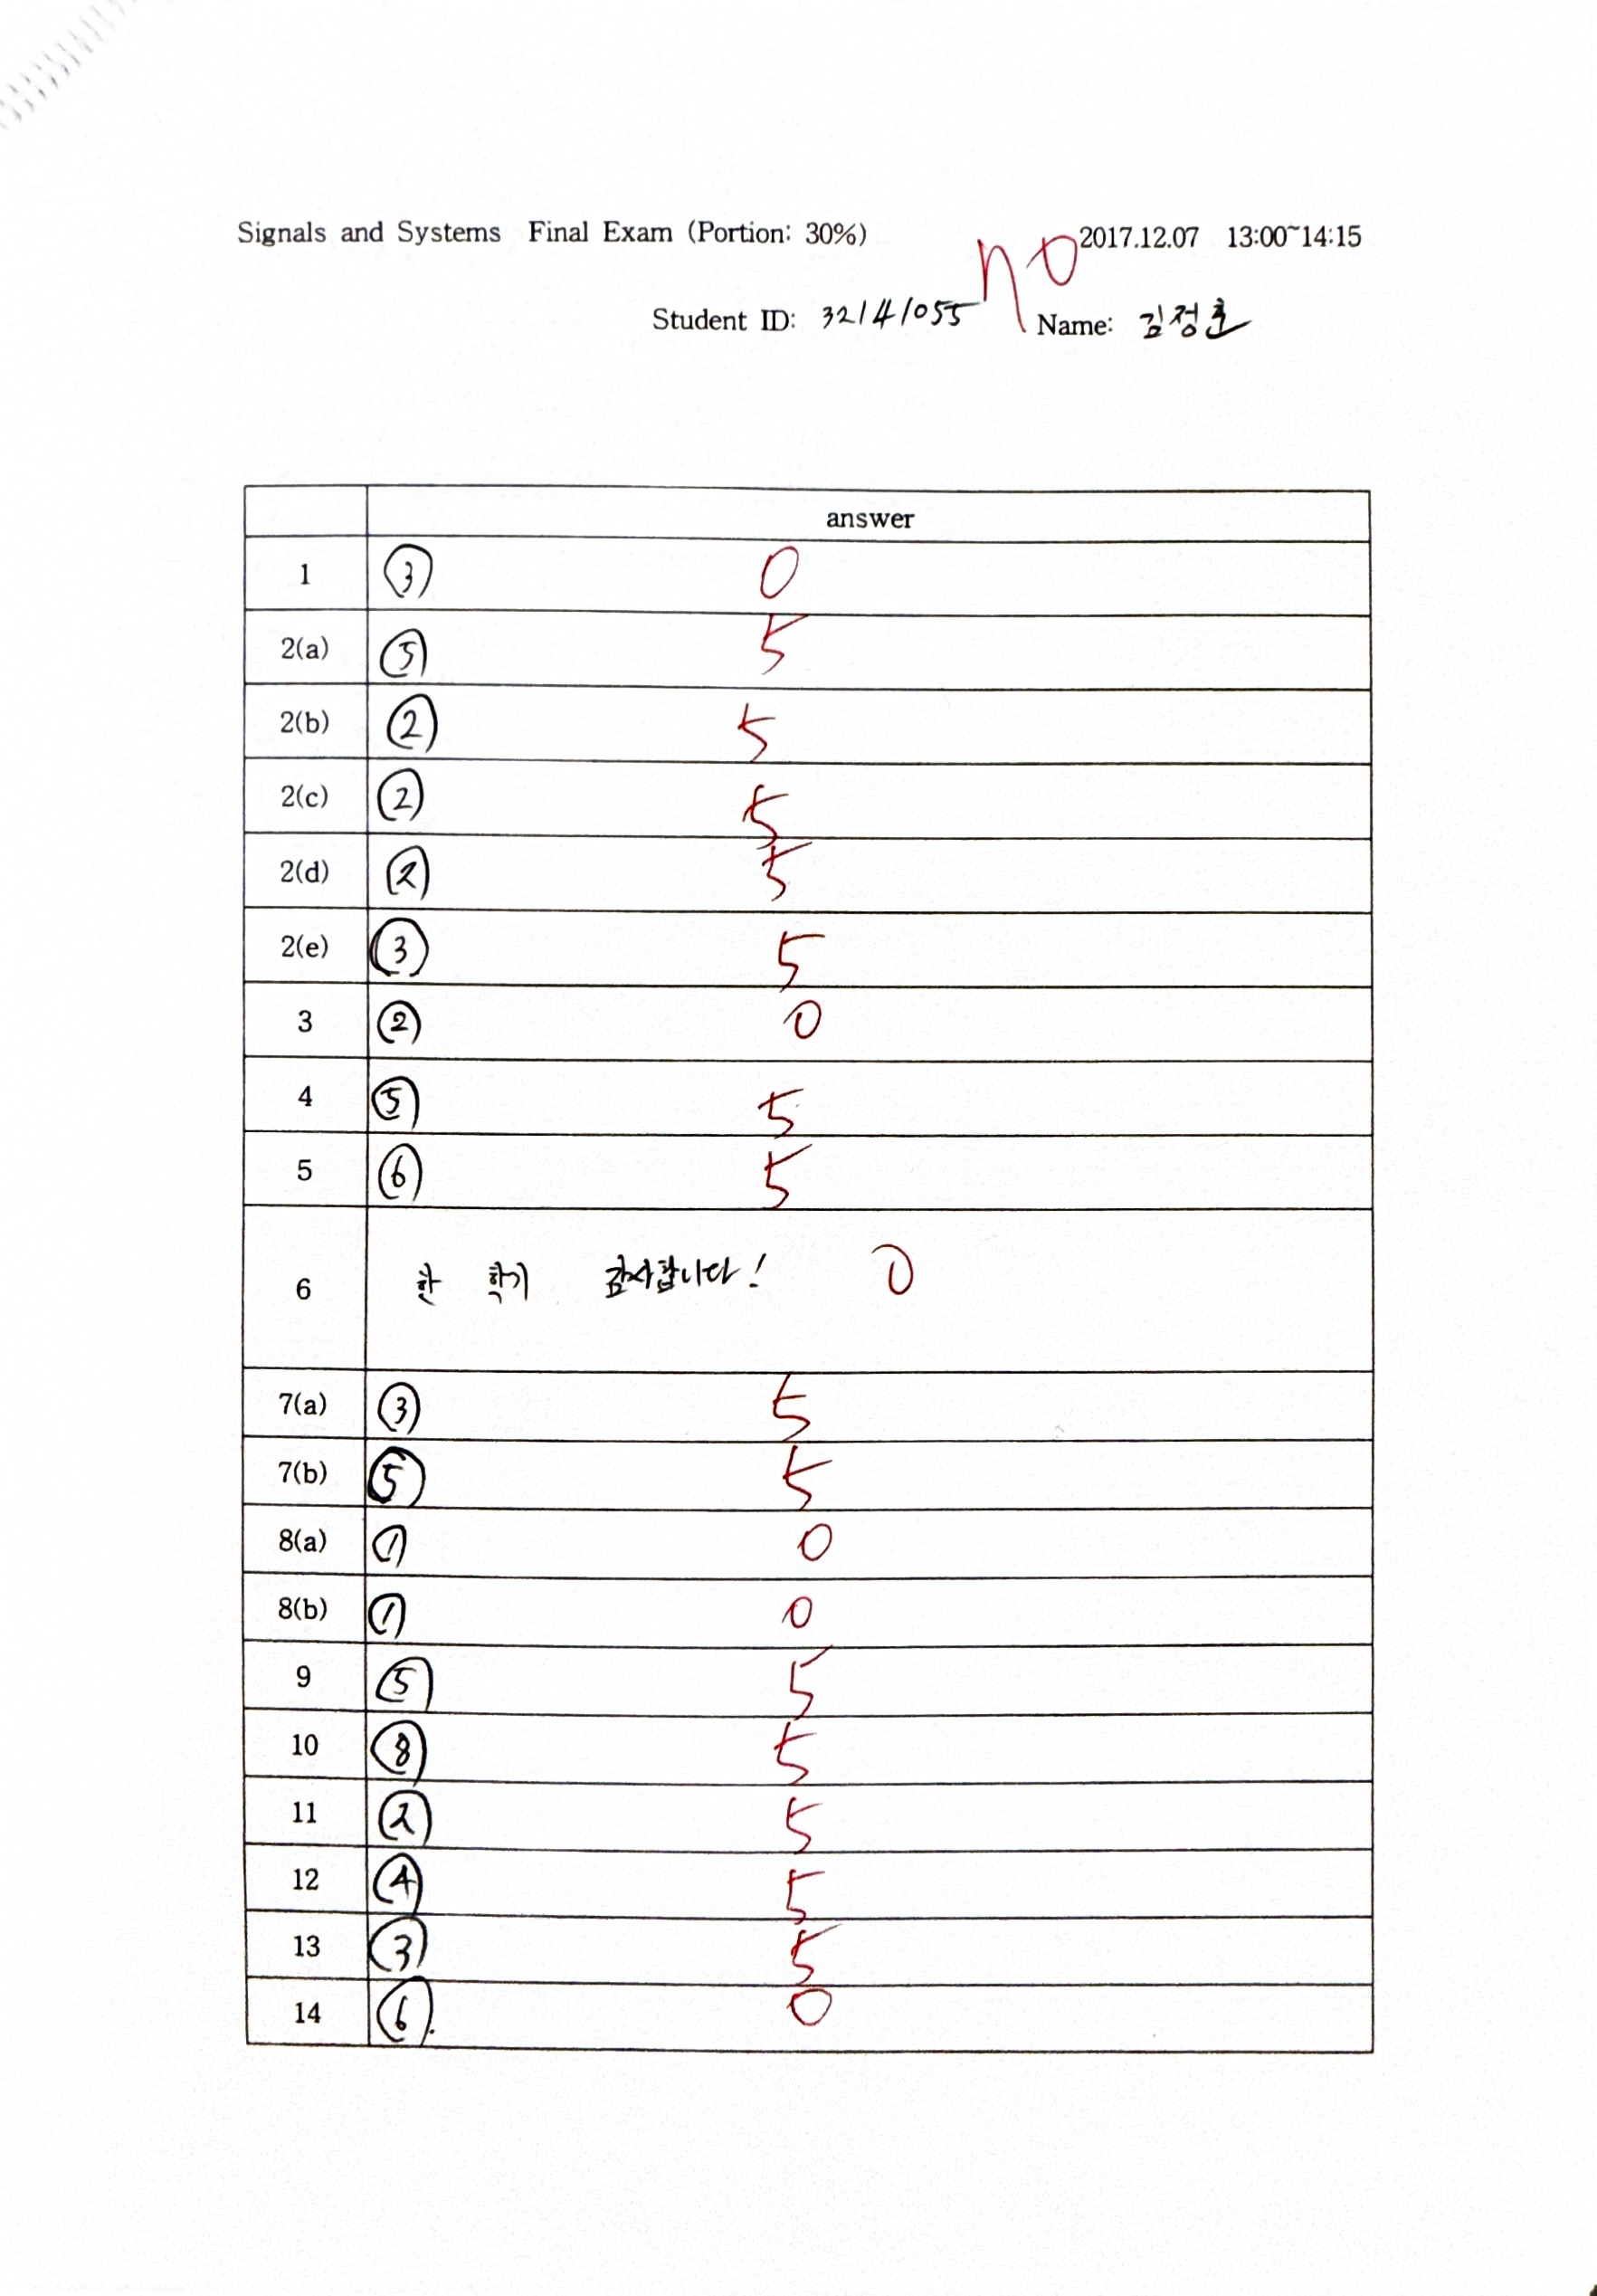 Signals and Systems Final Exam (Portion: 30%) 2017.12.07 13:00~14:15
70
Student ID: 32141055 Name: 김정훈
answer
1 ③ 0
2(a) ⑤ 5
2(b) ② 5
2(c) ② 5
2(d) ② 5
2(e) ③ 5
3 ② 0
4 ⑤ 5
5 ⑥ 5
6 한 학기 감사합니다! 0
7(a) ③ 5
7(b) ⑤ 5
8(a) ① 0
8(b) ① 0
9 ⑤ 5
10 ⑧ 5
11 ② 5
12 ④ 5
13 ③ 5
14 ⑥. 0